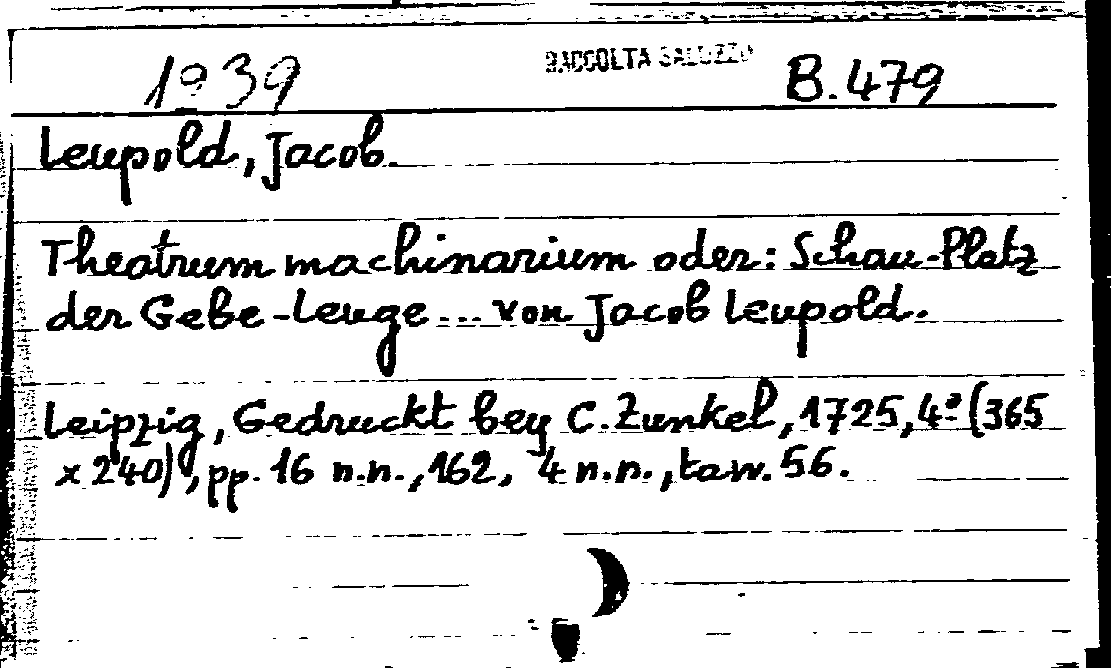 1939 RACCOLTA SALUZZO B.479
Leupold, Jacob.
Theatrum machinarium oder: Schau-Platz
der Gebe-Leuge... von Jacob Leupold.
Leipzig, Gedruckt bey C. Zunkel, 1725, 4º (365
x 240), pp. 16 n.n., 162, 4 n.n., tavv. 56.